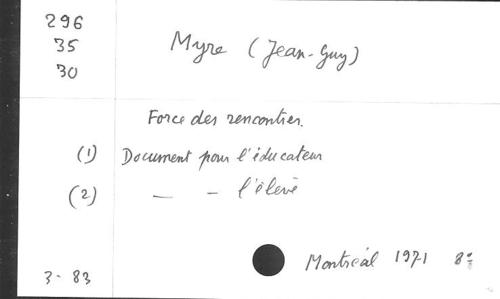 296
35
30
Myre (Jean-Guy)
Force des rencontres.
(1) Document pour l'éducateur
(2) — — l'élève
Montréal 1971 8°
3-83